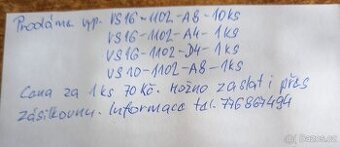 Prodáme vyp. VS16-1102-A8-10ks
VS16-1102-A4-1ks
VS16-1102-D4-1ks
VS10-1102-A8-1ks
Cena za 1ks 70Kč. Možno zaslat i přes
zásilkovnu. Informace tel. 776867494
Bazos.cz